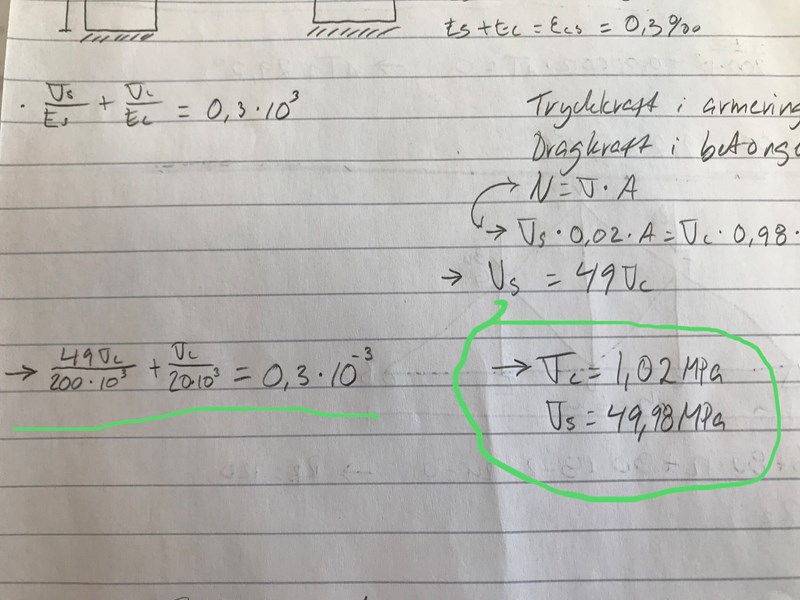 εs + εc = εcs = 0,3‰
· σs/Es + σc/Ec = 0,3·10³
Tryckkraft i armering
Dragkraft i betonge
→ N = σ · A
→ σs · 0,02 · A = σc · 0,98 ·
→ σs = 49σc
→ 49σc/200·10³ + σc/20·10³ = 0,3·10⁻³
→ σc = 1,02 MPa
σs = 49,98 MPa